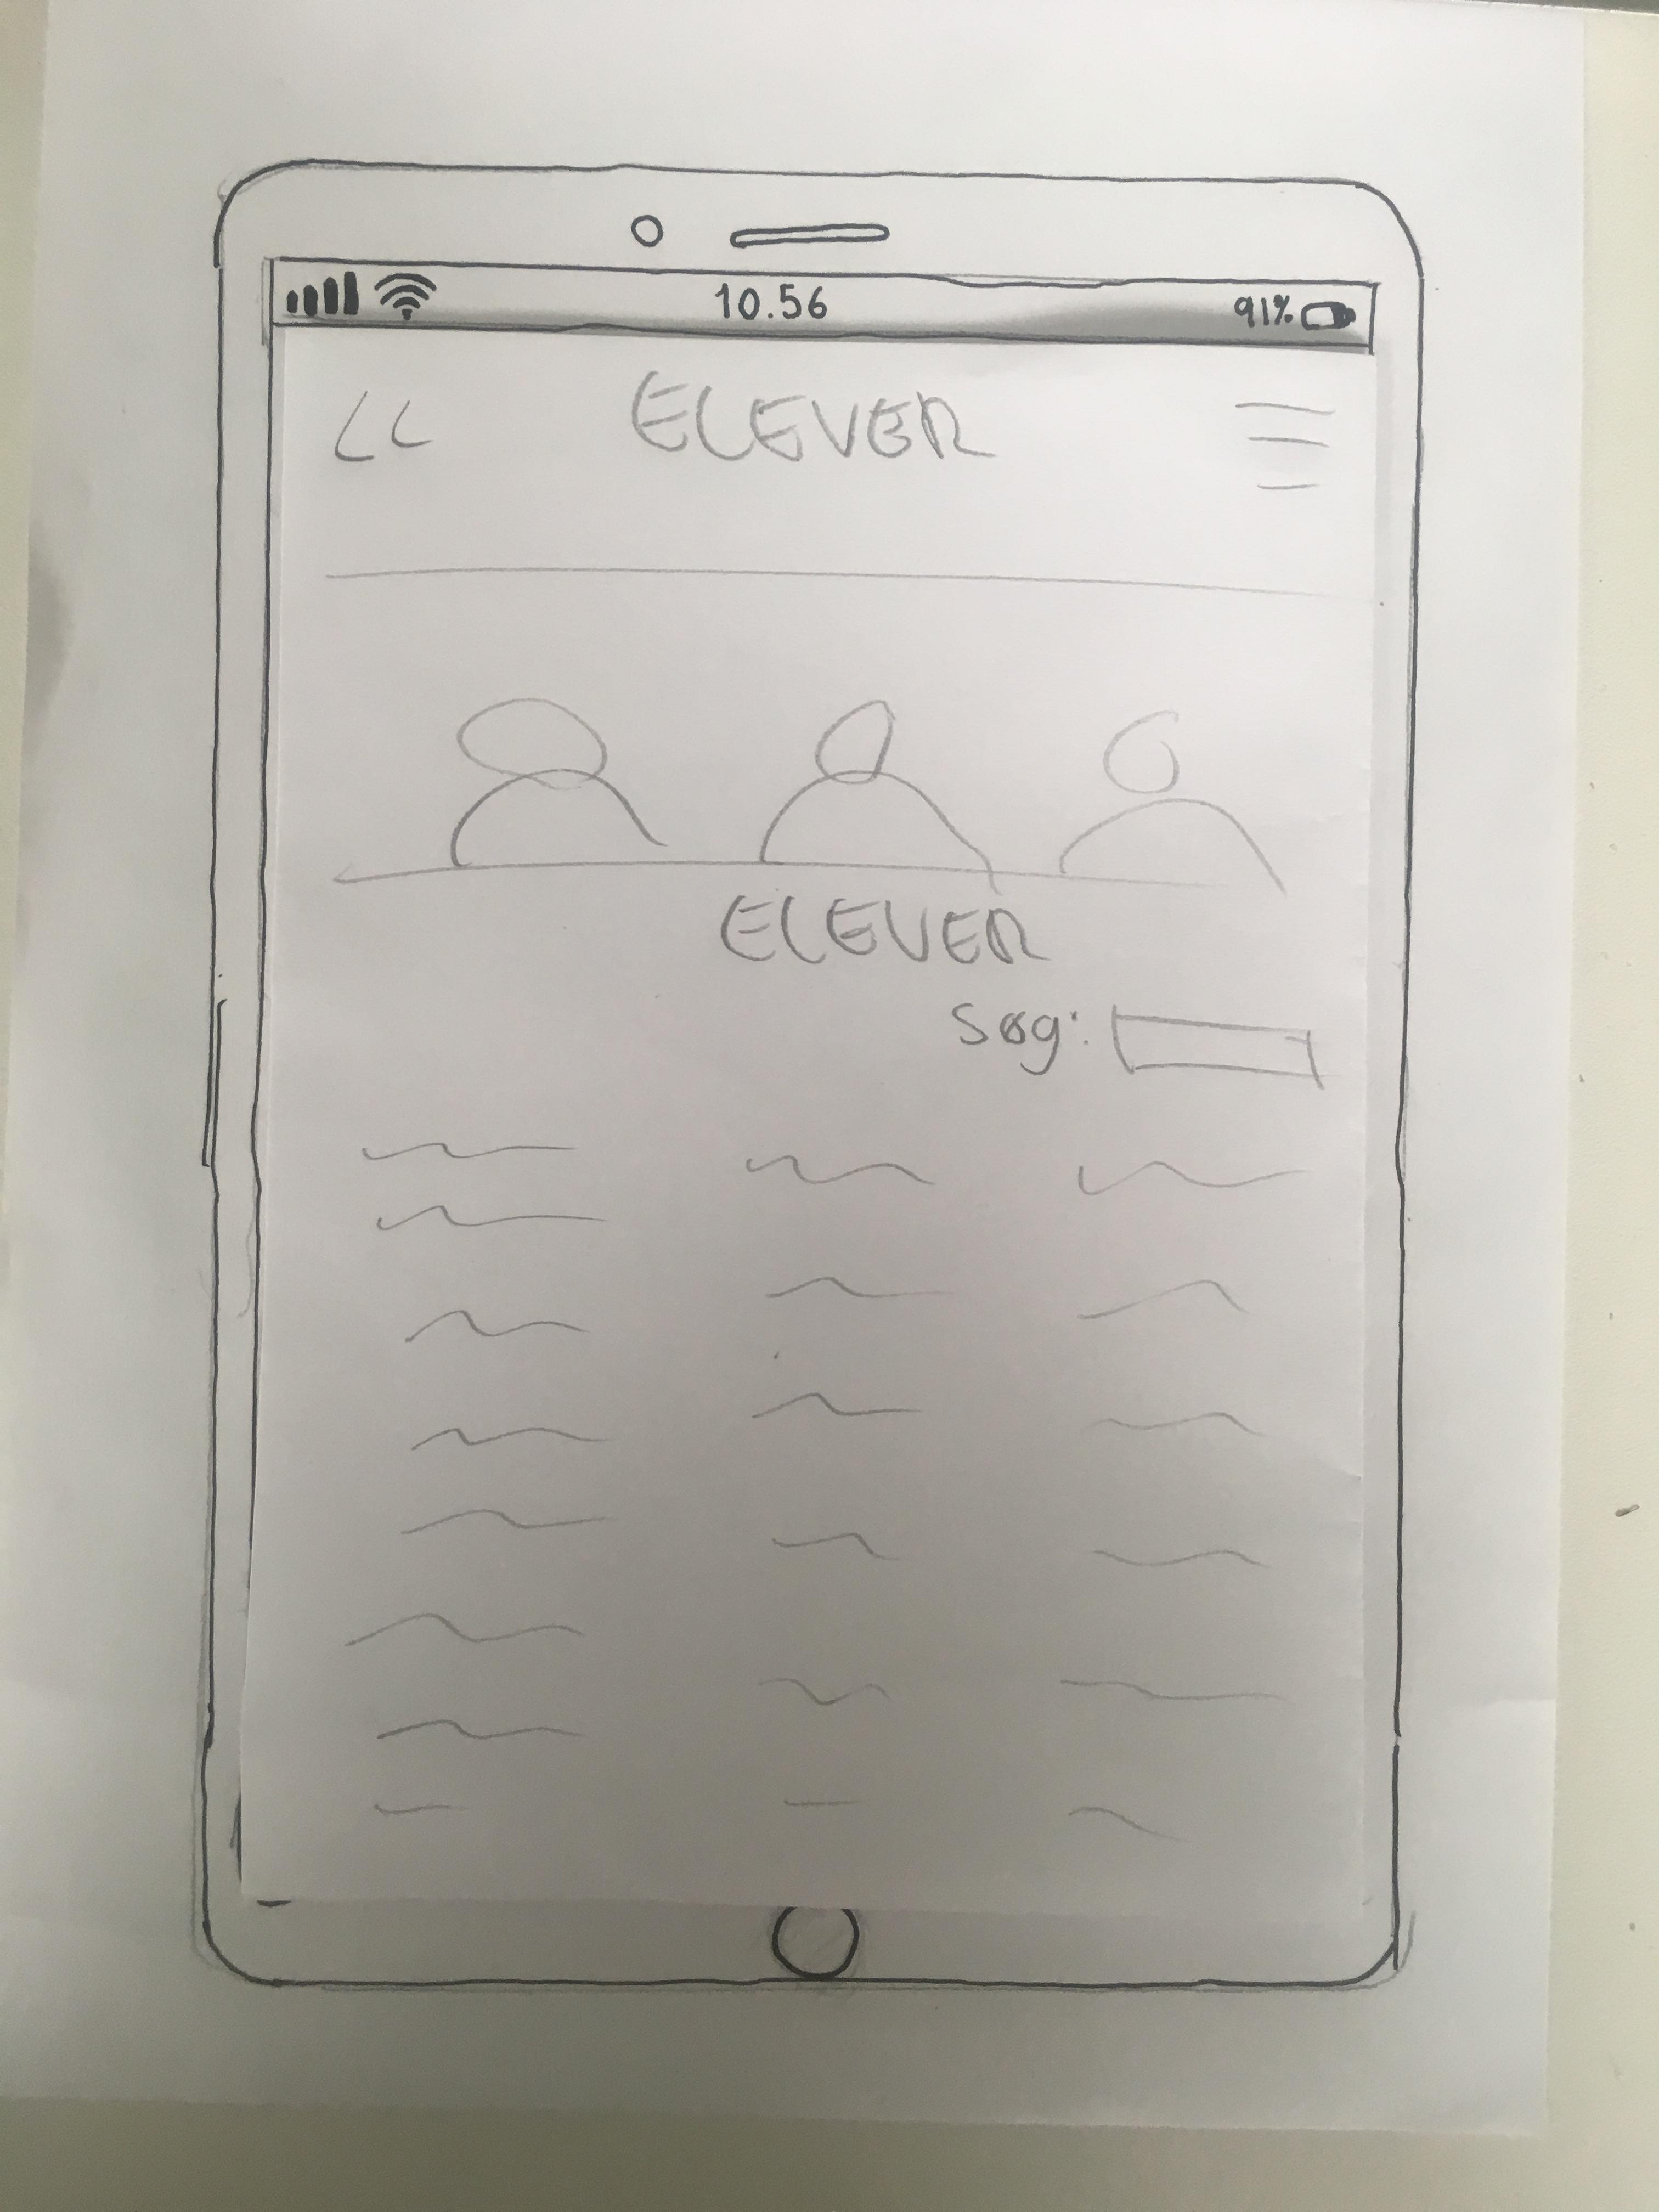 10.56 91%
ELEVER
ELEVER
Søg: